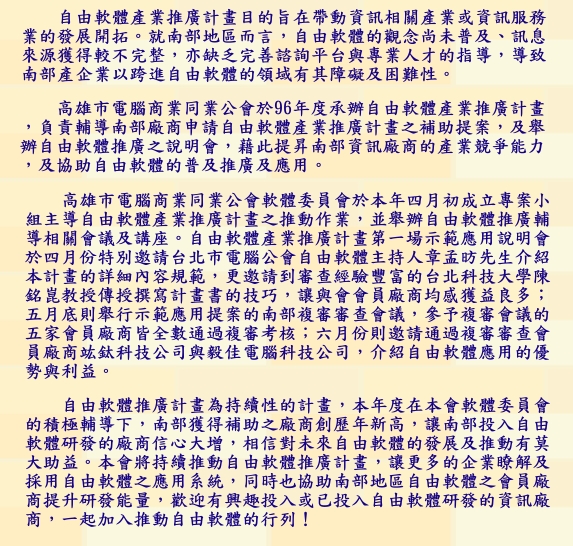 自由軟體產業推廣計畫目的旨在帶動資訊相關產業或資訊服務
業的發展開拓。就南部地區而言，自由軟體的觀念尚未普及、訊息
來源獲得較不完整，亦缺乏完善諮詢平台與專業人才的指導，導致
南部產企業以跨進自由軟體的領域有其障礙及困難性。
高雄市電腦商業同業公會於96年度承辦自由軟體產業推廣計畫
，負責輔導南部廠商申請自由軟體產業推廣計畫之補助提案，及舉
辦自由軟體推廣之說明會，藉此提昇南部資訊廠商的產業競爭能力
，及協助自由軟體的普及推廣及應用。
高雄市電腦商業同業公會軟體委員會於本年四月初成立專案小
組主導自由軟體產業推廣計畫之推動作業，並舉辦自由軟體推廣輔
導相關會議及講座。自由軟體產業推廣計畫第一場示範應用說明會
於四月份特別邀請台北市電腦公會自由軟體主持人章孟昉先生介紹
本計畫的詳細內容規範，更邀請到審查經驗豐富的台北科技大學陳
銘崑教授傳授撰寫計畫書的技巧，讓與會會員廠商均感獲益良多；
五月底則舉行示範應用提案的南部複審審查會議，參予複審會議的
五家會員廠商皆全數通過複審考核；六月份則邀請通過複審審查會
員廠商竑鈦科技公司與毅佳電腦科技公司，介紹自由軟體應用的優
勢與利益。
自由軟體推廣計畫為持續性的計畫，本年度在本會軟體委員會
的積極輔導下，南部獲得補助之廠商創歷年新高，讓南部投入自由
軟體研發的廠商信心大增，相信對未來自由軟體的發展及推動有莫
大助益。本會將持續推動自由軟體推廣計畫，讓更多的企業瞭解及
採用自由軟體之應用系統，同時也協助南部地區自由軟體之會員廠
商提升研發能量，歡迎有興趣投入或已投入自由軟體研發的資訊廠
商，一起加入推動自由軟體的行列！